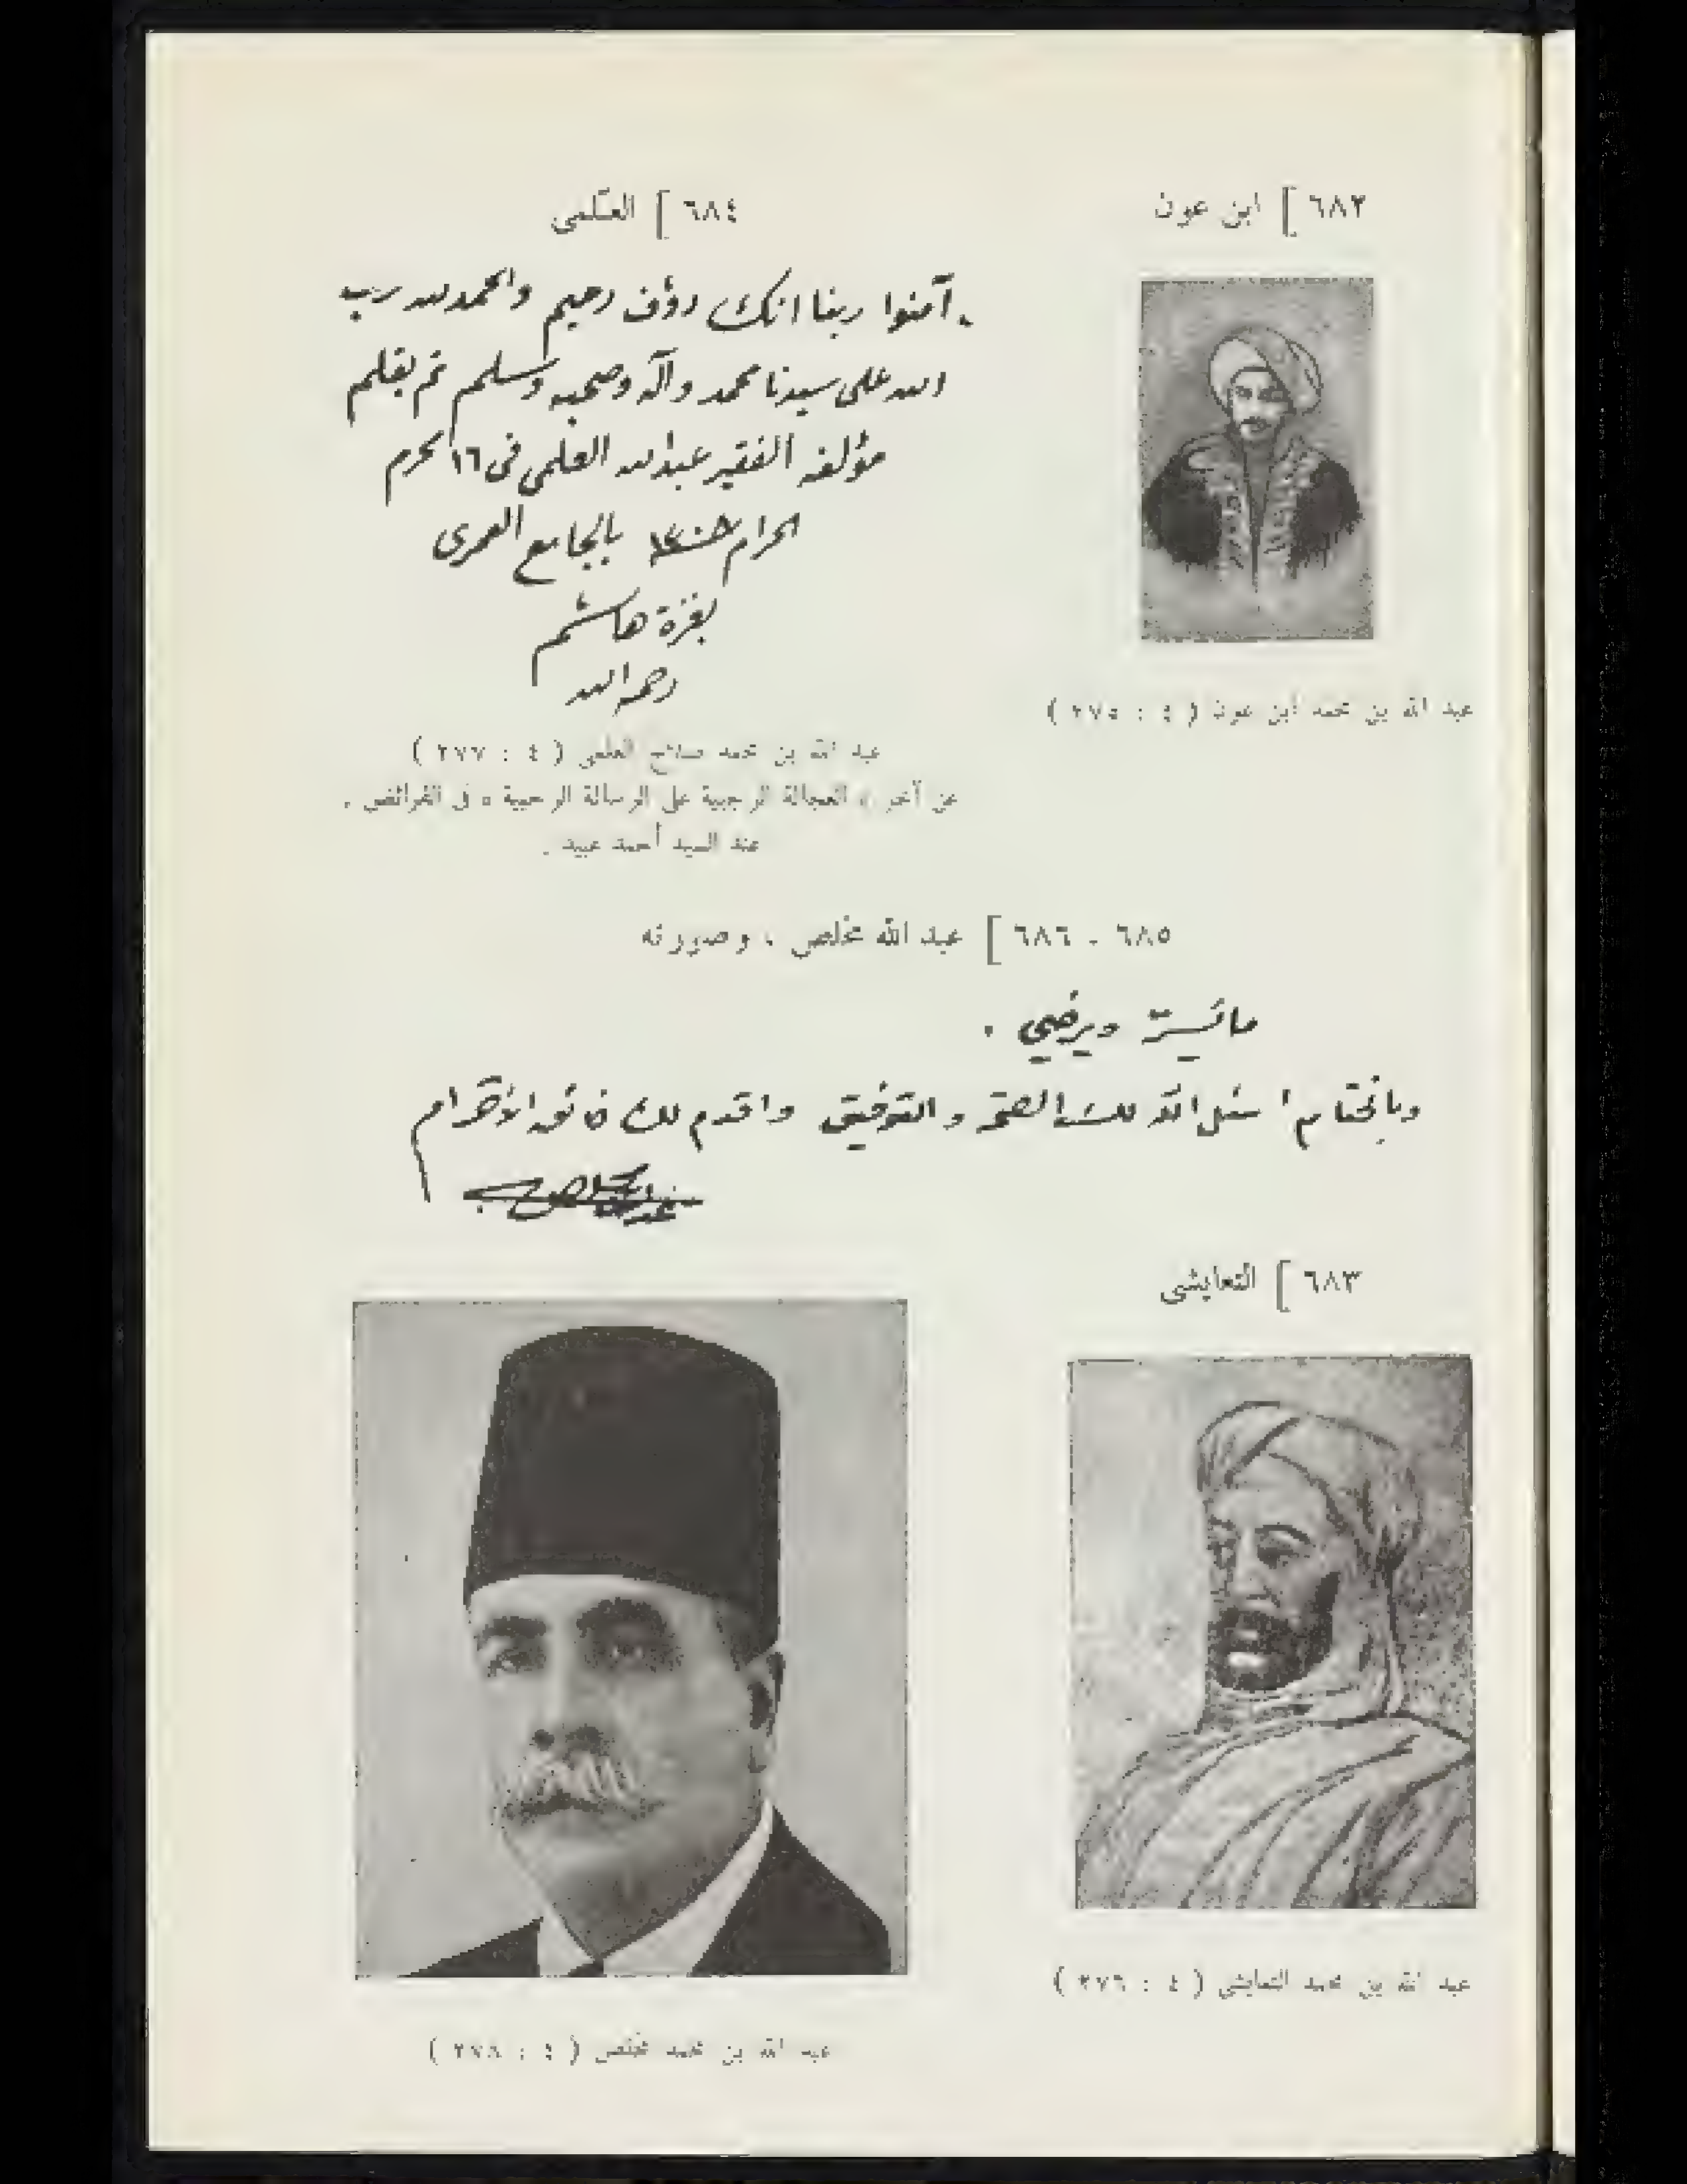 ٦٨٢ ] ابن عون
عبد الله بن محمد ابن عون ( ٤ : ٢٧٥ )
٦٨٤ ] العَلَمي
. آمنوا ربنا انك رؤف رحيم والحمد لله رب
الله على سيدنا محمد وآله وصحبه وسلم تم بقلم
مؤلفه الفقير عبد الله العلمي في ١٦ محرم
الحرام بالجامع العمري
بغزة هاشم
رحمه الله
عبد الله بن محمد صلاح العلمي ( ٤ : ٢٧٧ )
عن آخر « العجالة الرجبية على الرسالة الرحبية » في الفرائض .
عند السيد أحمد عبيد .
٦٨٥ - ٦٨٦ ] عبد الله مخلص ، وصورته
ما يسرّ ويرضي .
وبالختام اسئل الله لك الصحة والتوفيق واقدم لك فائق الاحترام
٦٨٣ ] التعايشي
عبد الله بن محمد التعايشي ( ٤ : ٢٧٦ )
عبد الله بن محمد مخلص ( ٤ : ٢٧٨ )